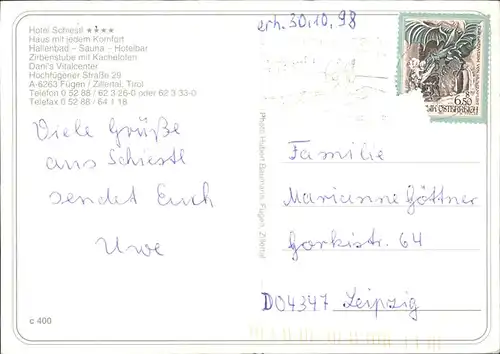 Hotel Schiestl ★★★★
Haus mit jedem Komfort
Hallenbad – Sauna – Hotelbar
Zirbenstube mit Kachelofen
Dani's Vitalcenter
Hochfügener Straße 29
A-6263 Fügen / Zillertal, Tirol
Telefon 0 52 88 / 62 3 26-0 oder 62 3 33-0
Telefax 0 52 88 / 64 1 18
Viele Grüße
aus Schiestl
sendet Euch
Uwe
c 400
Photo Hubert Baumann, Fügen, Zillertal
erh. 30.10.98
6.50
Familie
Marianne Göttner
Gorkistr. 64
D04347 Leipzig